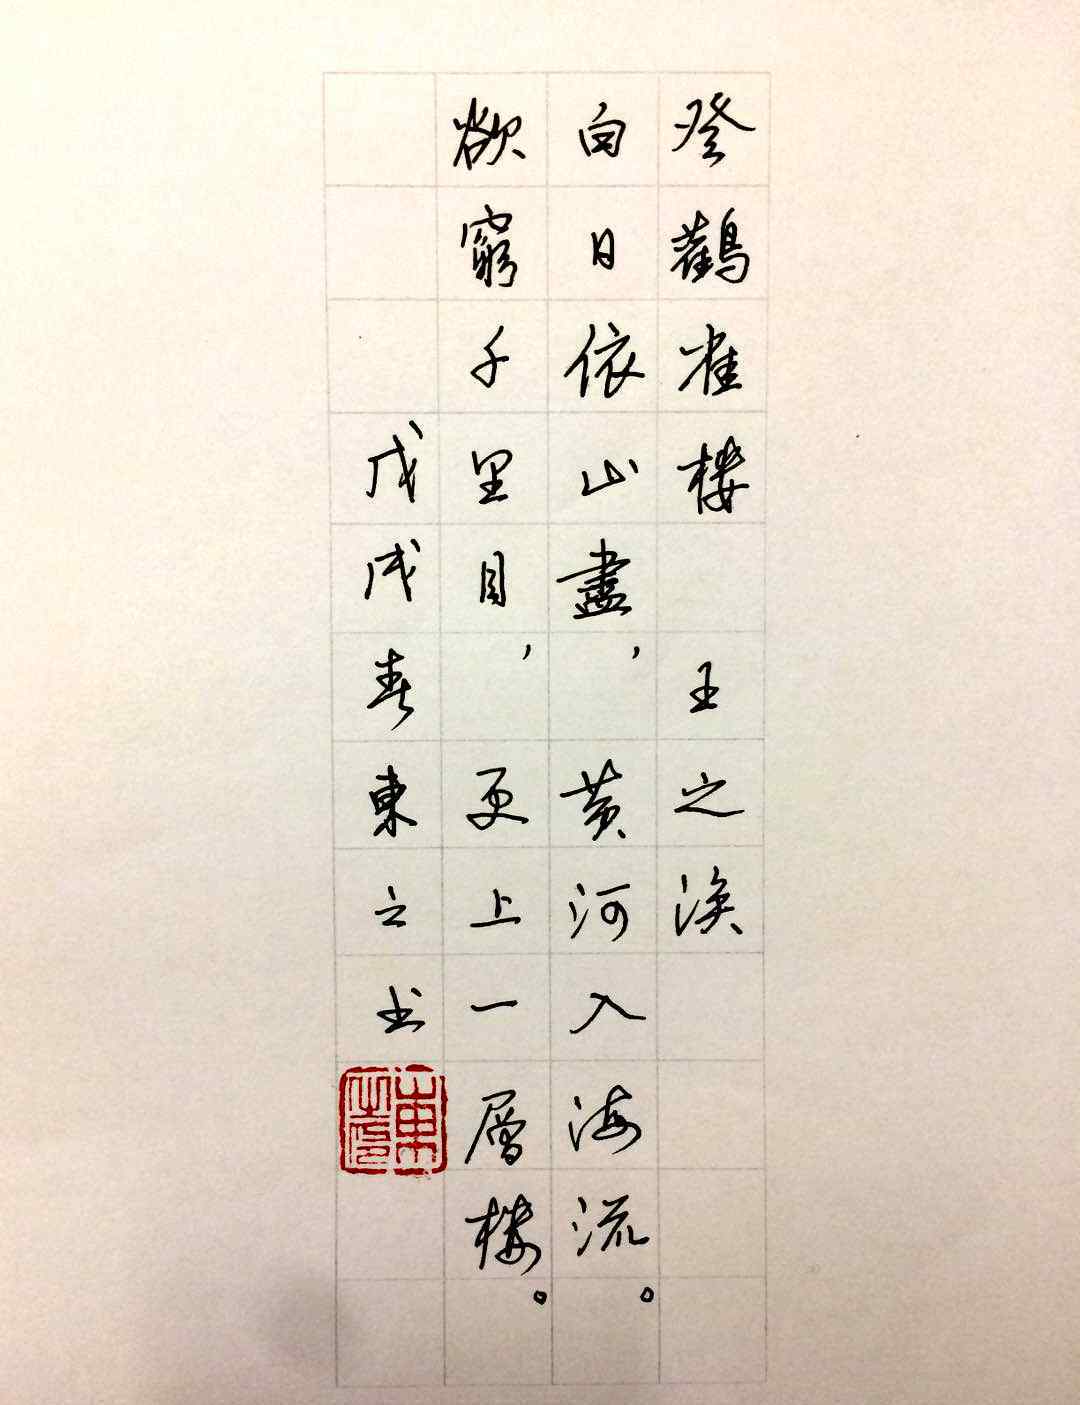 登鸛雀楼 王之涣
白日依山盡，黄河入海流。
欲窮千里目，更上一層楼。
戊戌春東之书